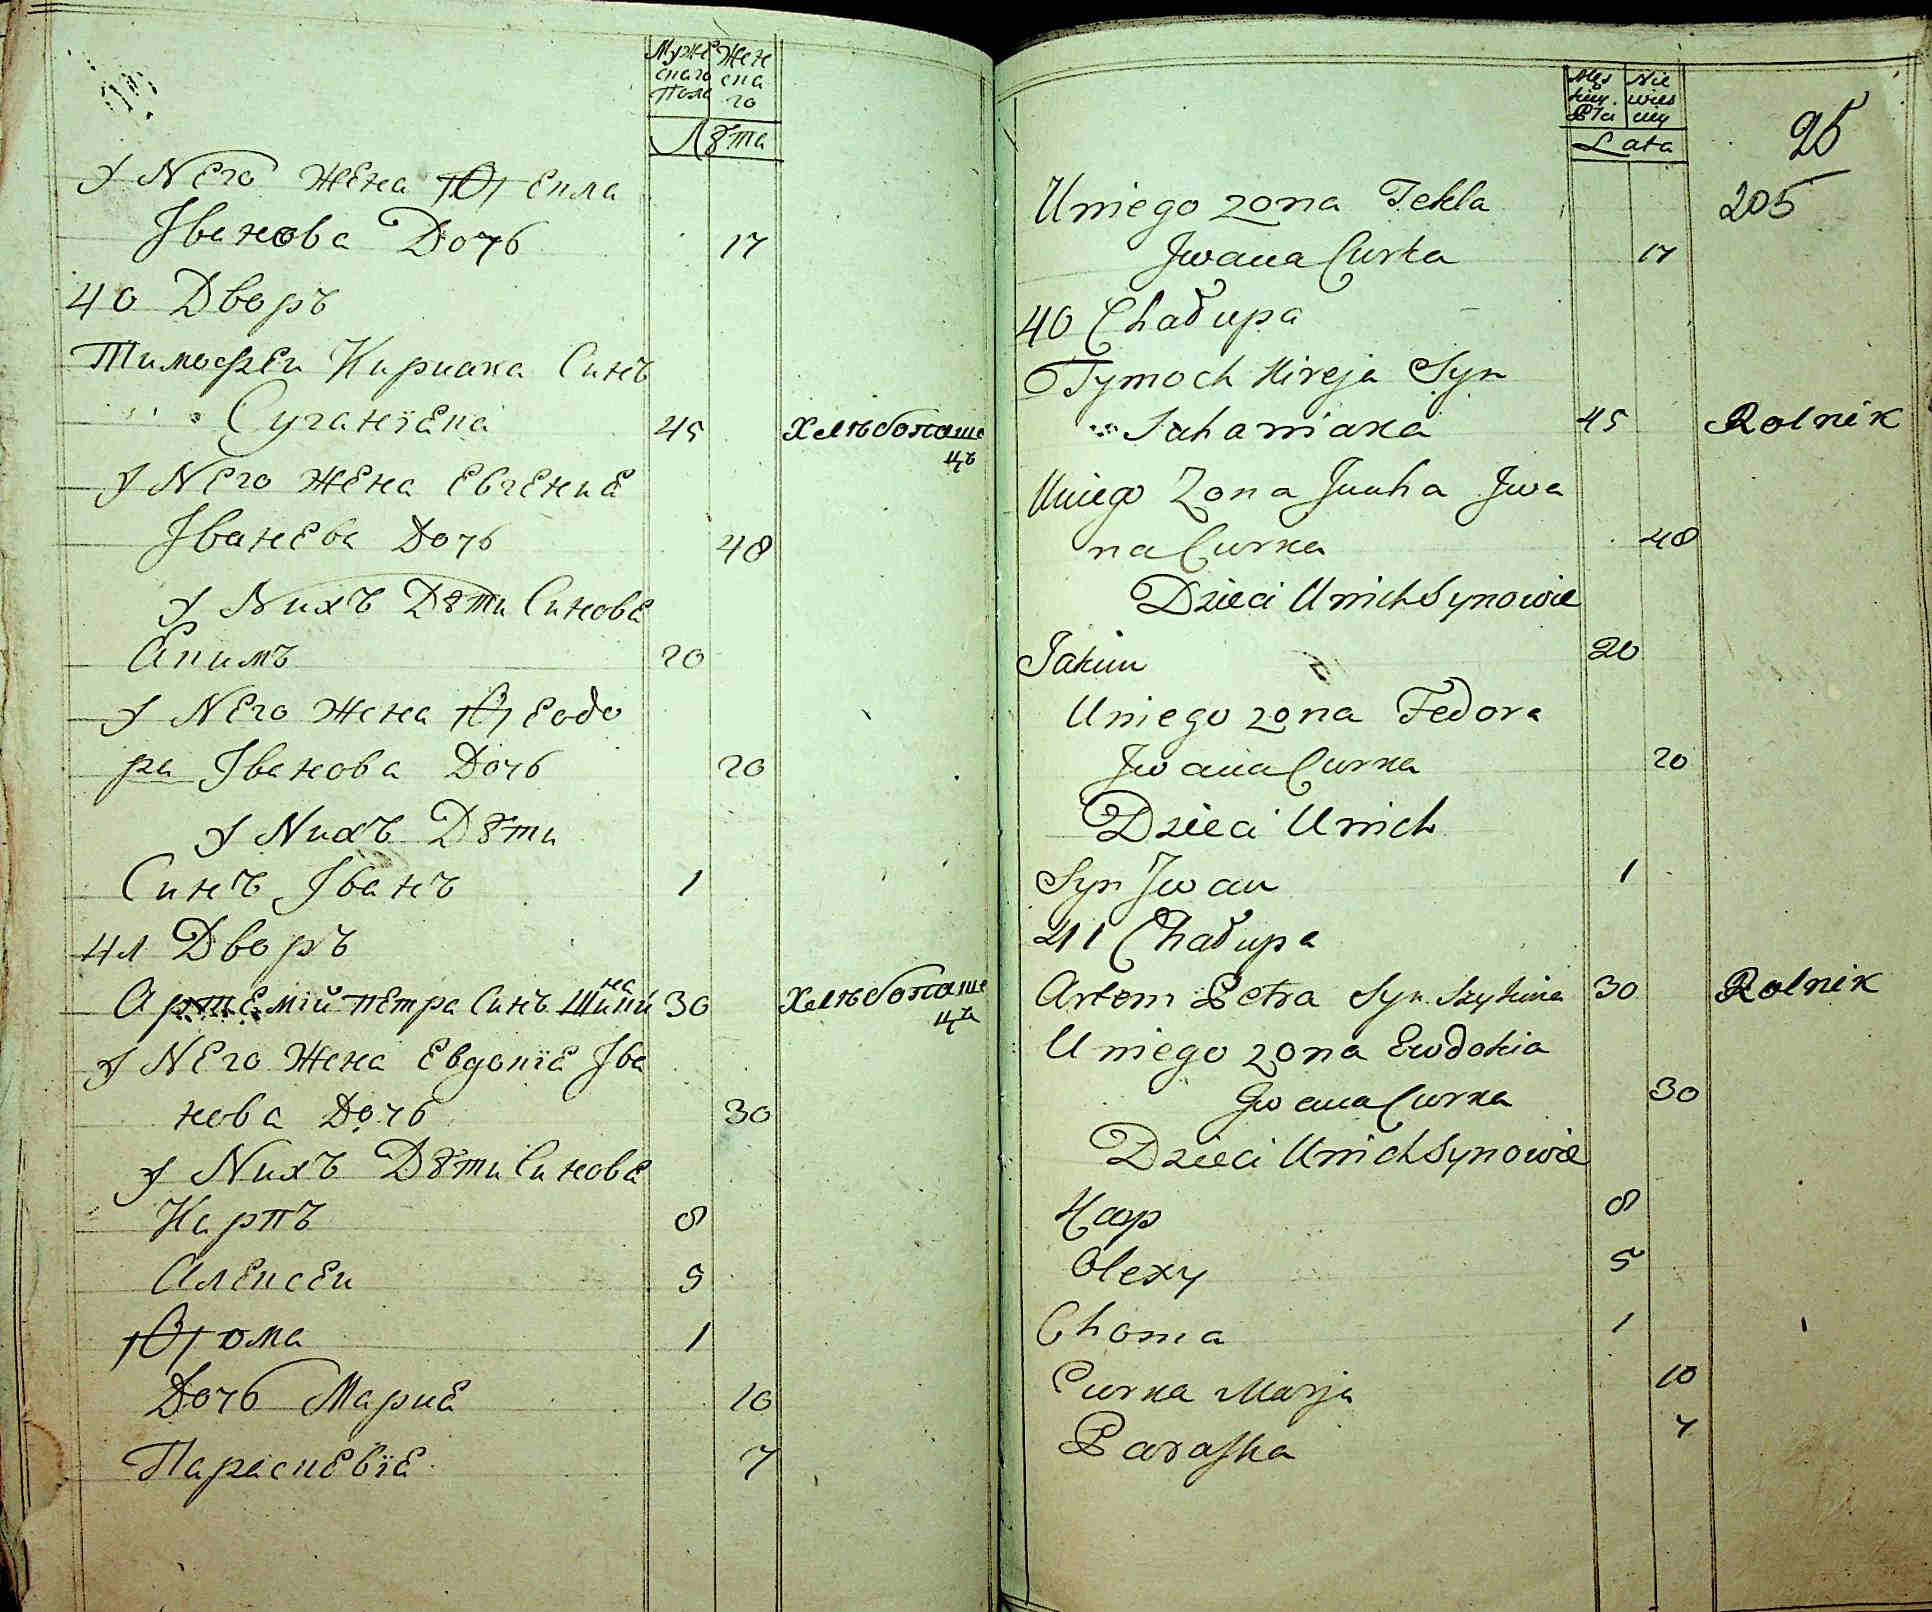 Муже Жен
скаго ска
Пола го
Лѣта
У Него Жена Ѳекла
Іванова Дочь 17
40 Дворъ
Тимофеи Кириака Синъ
Суганїака 45 Хлѣбопаше
цъ
У Него Жена Евгениа
Іванева Дочь 48
У Нихъ Дѣти Синовя
Акимъ 20
У Него Жена Ѳеодо
ра Іванова Дочь 20
У Нихъ Дѣти
Синъ Іванъ 1
41 Дворъ
на
Артемій петра Синъ Шики 30 Хлѣбопаше
цъ
У Него Жена Евдокїа Іва
нова Дочь 30
У Нихъ Дѣти Синовя
Карпъ 8
Алексеи 5
Ѳома 1
Дочь Мариа 10
Параскевїа 7
Męs Nie
kiey wies
Płci ciey
Lata
95
205
Uniego zona Tekla
Jwana Curka 17
40 Chałupa
Tymoch Kireja Syn
Suhaniaka 45 Rolnik
Uniego Zona Jiuha Jwa
na Curka 48
Dzieci Unich Synowie
Jakim 20
Uniego zona Fedora
Jwana Curka 20
Dzieci Unich
Syn Jwan 1
41 Chałupa
Artem Petra Syn Szykina 30 Rolnik
Uniego zona Ewdokia
Jwana Curka 30
Dzieci Unich Synowie
Karp 8
Olexy 5
Choma 1
Curka Marja 10
Paraska 7